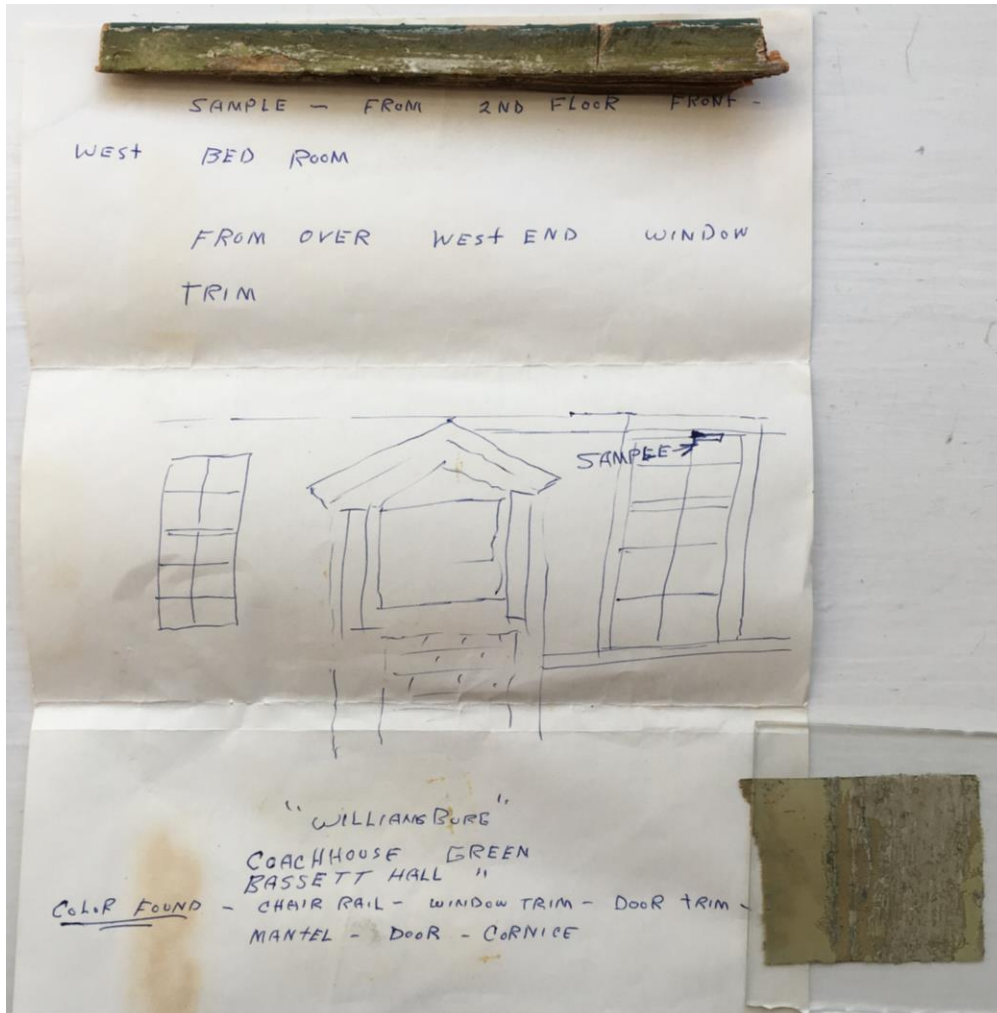 SAMPLE - FROM 2ND FLOOR FRONT -
WEST BED ROOM
FROM OVER WEST END WINDOW
TRIM
SAMPLE
"WILLIAMSBURG"
COACHHOUSE GREEN
BASSETT HALL "
COLOR FOUND - CHAIR RAIL - WINDOW TRIM - DOOR TRIM -
MANTEL - DOOR - CORNICE